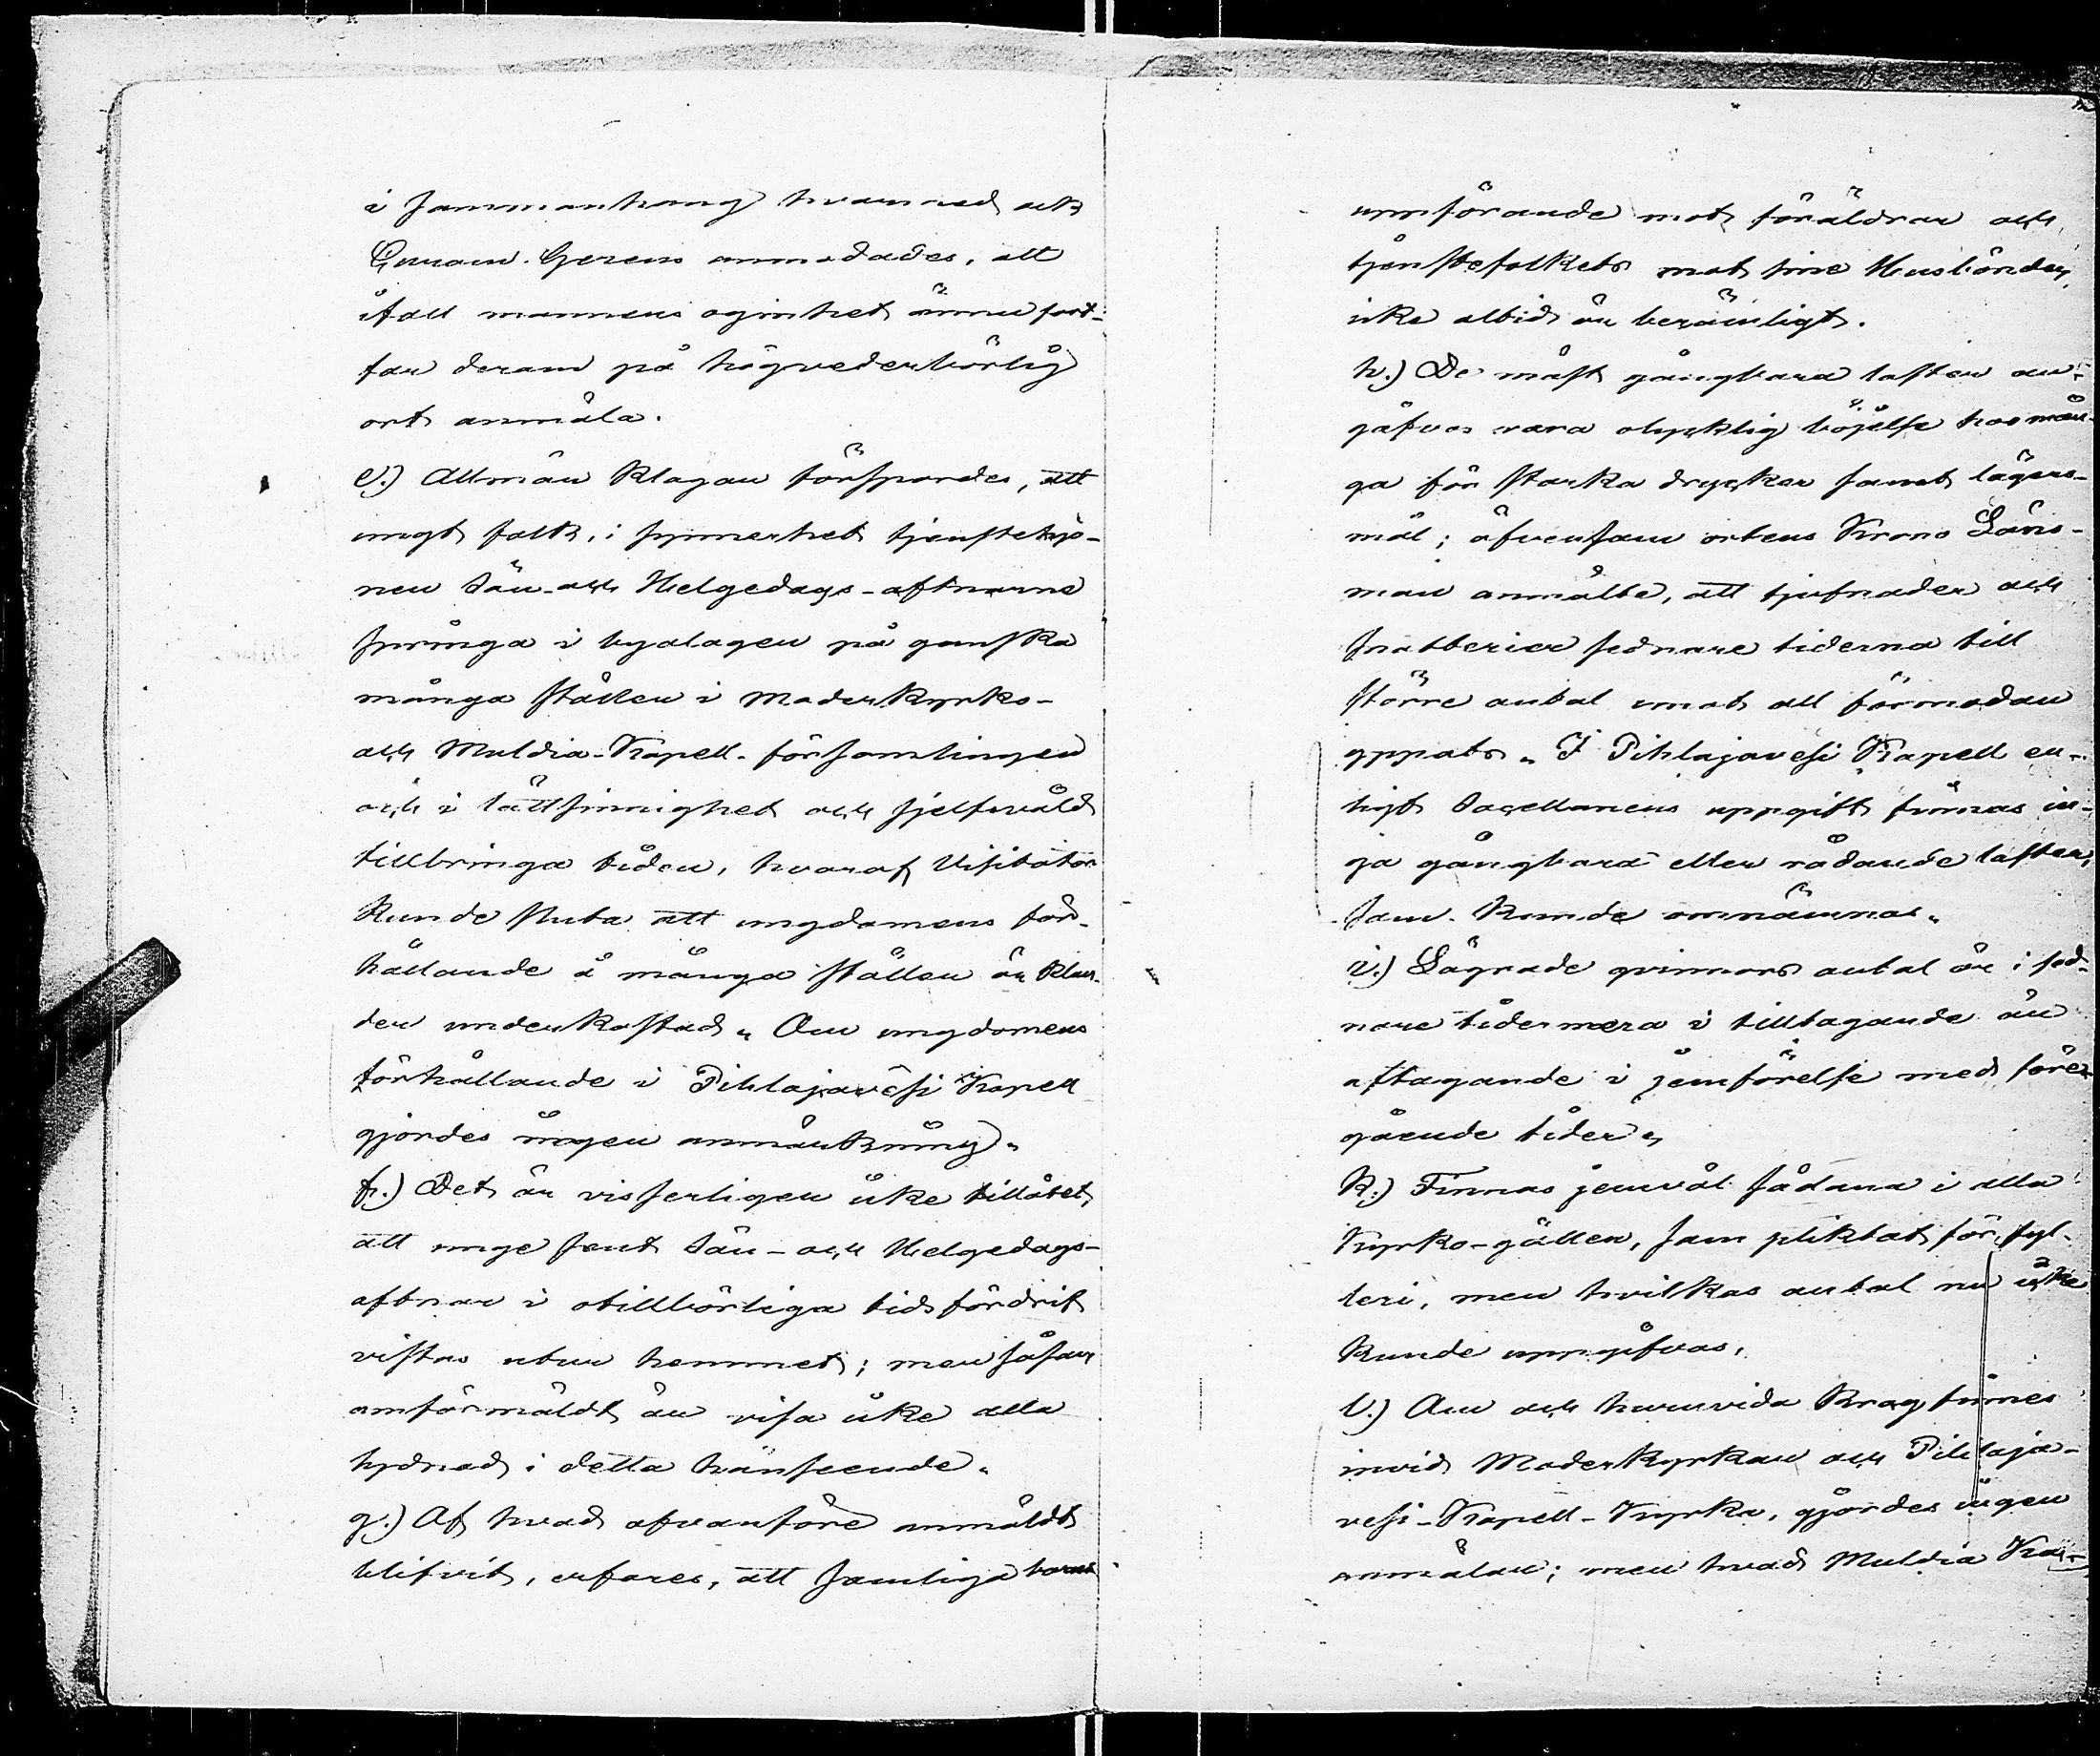 i sammanhang hvarmed ock
Gerens anmodades, att
ifall mannens oginhet ännu fort-
far derom på högvederbörlig
ort anmäla.
e.) Allmän klagan förspordes, att
ungt folk, i synnerhet tjenstehjo-
nen Sön- och Helgedags-aftnarne
springa i byalagen på ganska
många ställen i Moderkyrko-
och Muldia-Kapell-församlingen
och i lättsinnighet och sjelfsvåld
tillbringa tiden, hvaraf Visitator
kunde sluta att ungdomens för-
hållande å många ställen är klan-
der underkastad. Om ungdomens
förhållande i Pihlajavesi Kapell
gjordes ingen anmärkning.
f.) Det är visserligen icke tillåtet,
att unge sent Sön- och Helgedags-
aftnar i otillbörliga tidsfördrif
vistas utur hemmet; men såsom
omförmäldt är visa icke alla
lydnad i detta hänseende.
g.) Af hvad ofvanföre anmäldt
blifvit, erfares, att samtliga barns
uppförande mot föräldrar och
tjenstefolkets mot sine Husbönder,
icke altid är berömligt.
h.) De mäst gångbara laster an-
gåfvos vara olycklig böjelse hos mån-
ga för starka drycker samt lägers-
mål; äfvensom ortens Krono Läns-
man anmälte, att tjufnader och
snatterier sednare tiderna till
större antal emot all förmodan
yppats. I Pihlajavesi Kapell en-
ligt Sacellanens uppgift finnas in-
ga gångbara eller rådande laster,
som kunde omnämnas.
i.) Lägrade qvinnors antal är i sed-
nare tider mera i tilltagande än
aftagande i jemförelse med före-
gående tider.
k.) Finnas jemväl sådana i alla
Kyrko-gällen, som pliktat för fyl-
leri, men hvilkas antal nu icke
kunde uppgifvas.
l.) Om och huruvida Krog finnes
invid Moderkyrkan och Pihlaja-
vesi-Kapell-Kyrka, gjordes ingen
anmälan; men hvad Muldia Ka-